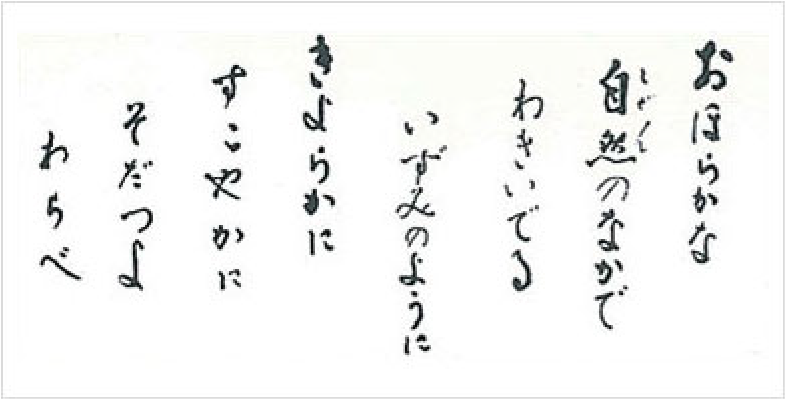 おほらかな
自然のなかで
しぜん
わきいでる
いずみのように
きよらかに
すこやかに
そだつよ
わらべ